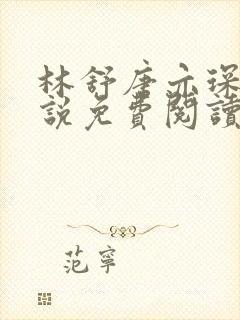 林舒唐亦琛
說免費閱讀
范寧